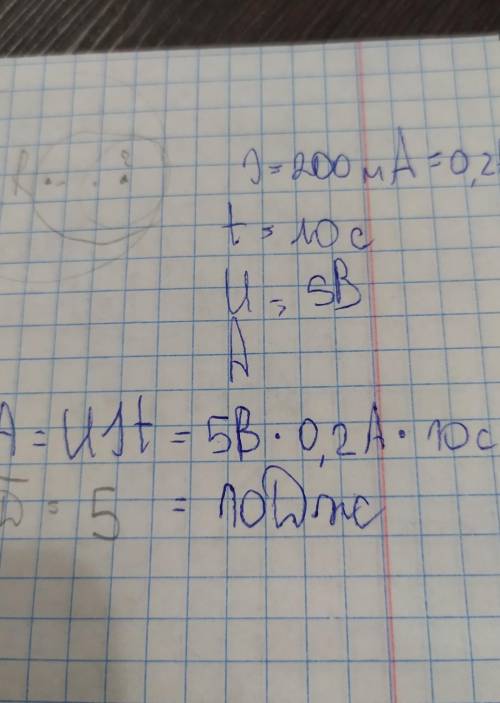 I = 200 мА = 0,2
t = 10 с
U = 5В
A
A = UIt = 5В · 0,2А · 10с
= 5 = 10 Дж